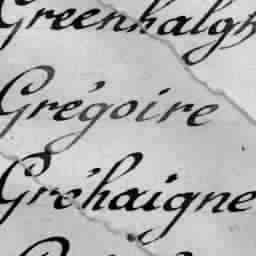 Greenhalgh
Grégoire
Gréhaigne